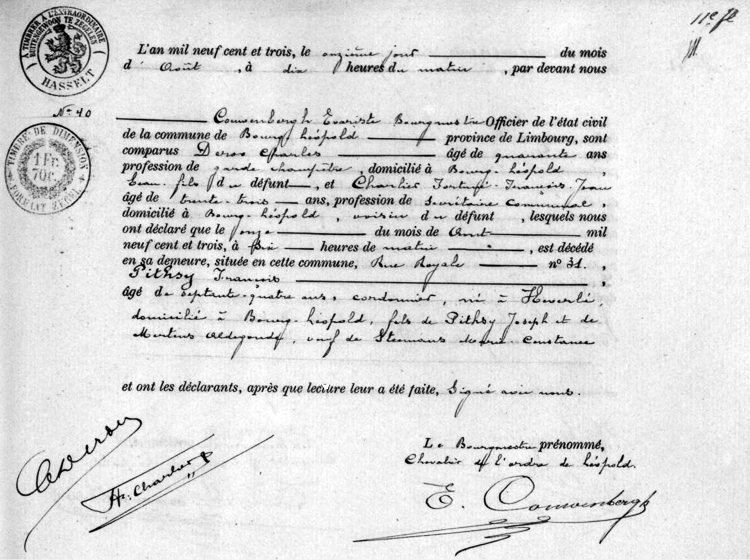 11e fl
A TIMBRER A L'EXTRAORDINAIRE
BUITENGEWOON TE ZEGELEN
HASSELT
L'an mil neuf cent et trois, le onzième jour du mois
d' Août, à dix heures du matin, par devant nous
No 40
Couwenbergh Evariste Bourgmestre Officier de l'état civil
de la commune de Bourg-Léopold province de Limbourg, sont
comparus Deros Charles âgé de quarante ans
profession de garde champêtre, domicilié à Bourg-Léopold,
beau-fils du défunt, et Charlier François-Jean
âgé de trente-trois ans, profession de Secrétaire Communal,
domicilié à Bourg-Léopold, voisin du défunt, lesquels nous
ont déclaré que le onze du mois de Août mil
neuf cent et trois, à heures de matin, est décédé
en sa demeure, située en cette commune, Rue Royale no 31.,
Pithsy François,
âgé de septante-quatre ans, cordonnier, né à Heverlé,
domicilié à Bourg-Léopold, fils de Pithsy Joseph et de
Mertens Aldegonde, veuf de Steemans Marie Constance
et ont les déclarants, après que lecture leur a été faite, signé avec nous.
TIMBRE DE DIMENSION
1 Fr.
70c.
Le Bourgmestre prénommé,
Chevalier de l'ordre de Léopold.
E. Couwenbergh